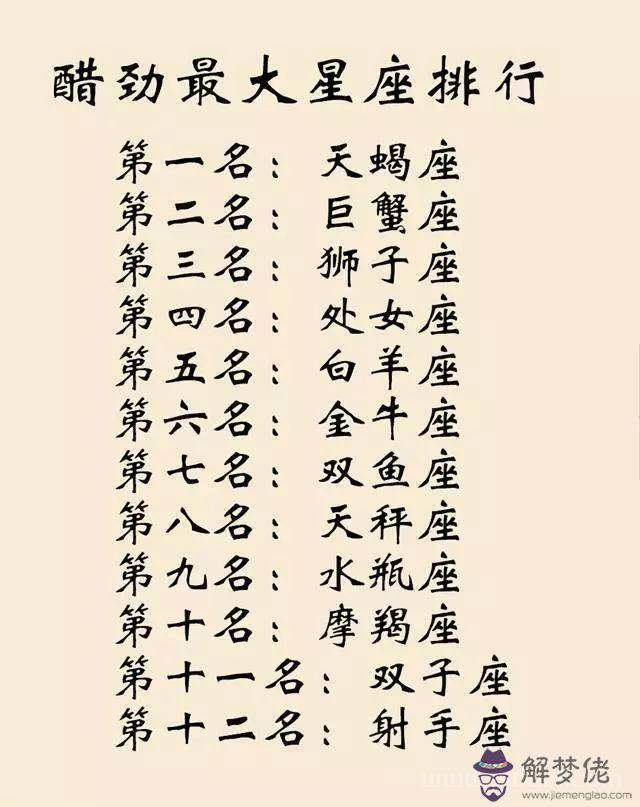 醋劲最大星座排行
第一名：天蝎座
第二名：巨蟹座
第三名：狮子座
第四名：处女座
第五名：白羊座
第六名：金牛座
第七名：双鱼座
第八名：天秤座
第九名：水瓶座
第十名：摩羯座
第十一名：双子座
第十二名：射手座
解梦佬
www.jiemenglao.com